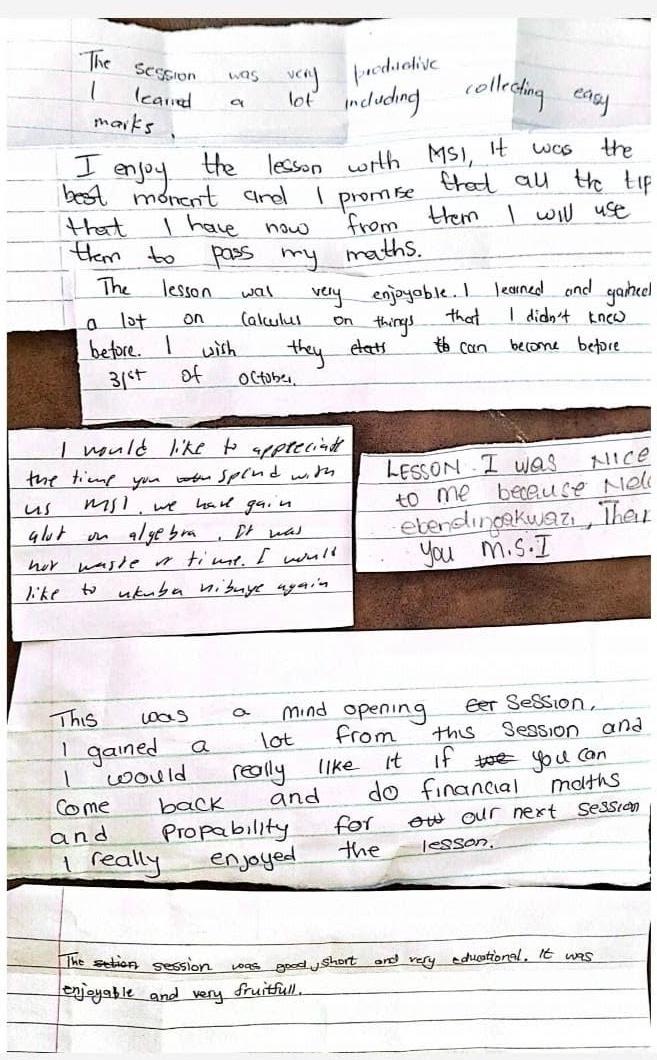 The session was very productive
I learned a lot including collecting easy
marks.
I enjoy the lesson with MSI, It was the
best moment and I promise that all the tip
that I have now from them I will use
them to pass my maths.
The lesson was very enjoyable. I learned and gained
a lot on Calculus on things that I didn't knew
before. I wish they can become before
31st of October.
I would like to appreciate
the time you spend with
us MSI, we have gain
alot on algebra. It was
not waste of time. I would
like to ukuba nibuye again
LESSON I was NICE
to me because
ebendingakwazi, Than
you M.S.I
This was a mind opening Session,
I gained a lot from this Session and
I would really like it if you can
Come back and do financial maths
and Propability for our next session
I really enjoyed the lesson.
The session was good, short and very educational. It was
enjoyable and very fruitfull.